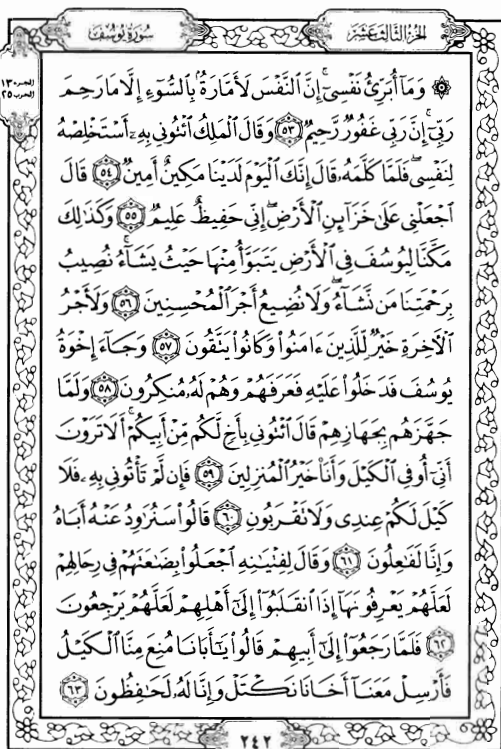 سُورَةُ يُوسُفَ
الجُزْءُ الثَّالِثَ عَشَرَ
الجزء ١٣
الحزب ٢٥
۞ وَمَآ أُبَرِّئُ نَفْسِىٓ ۚ إِنَّ ٱلنَّفْسَ لَأَمَّارَةٌۢ بِٱلسُّوٓءِ إِلَّا مَا رَحِمَ
رَبِّىٓ ۚ إِنَّ رَبِّى غَفُورٌ رَّحِيمٌ ٥٣ وَقَالَ ٱلْمَلِكُ ٱئْتُونِى بِهِۦٓ أَسْتَخْلِصْهُ
لِنَفْسِى ۖ فَلَمَّا كَلَّمَهُۥ قَالَ إِنَّكَ ٱلْيَوْمَ لَدَيْنَا مَكِينٌ أَمِينٌ ٥٤ قَالَ
ٱجْعَلْنِى عَلَىٰ خَزَآئِنِ ٱلْأَرْضِ ۖ إِنِّى حَفِيظٌ عَلِيمٌ ٥٥ وَكَذَٰلِكَ
مَكَّنَّا لِيُوسُفَ فِى ٱلْأَرْضِ يَتَبَوَّأُ مِنْهَا حَيْثُ يَشَآءُ ۚ نُصِيبُ
بِرَحْمَتِنَا مَن نَّشَآءُ ۖ وَلَا نُضِيعُ أَجْرَ ٱلْمُحْسِنِينَ ٥٦ وَلَأَجْرُ
ٱلْءَاخِرَةِ خَيْرٌ لِّلَّذِينَ ءَامَنُوا۟ وَكَانُوا۟ يَتَّقُونَ ٥٧ وَجَآءَ إِخْوَةُ
يُوسُفَ فَدَخَلُوا۟ عَلَيْهِ فَعَرَفَهُمْ وَهُمْ لَهُۥ مُنكِرُونَ ٥٨ وَلَمَّا
جَهَّزَهُم بِجَهَازِهِمْ قَالَ ٱئْتُونِى بِأَخٍ لَّكُم مِّنْ أَبِيكُمْ ۚ أَلَا تَرَوْنَ
أَنِّىٓ أُوفِى ٱلْكَيْلَ وَأَنَا۠ خَيْرُ ٱلْمُنزِلِينَ ٥٩ فَإِن لَّمْ تَأْتُونِى بِهِۦ فَلَا
كَيْلَ لَكُمْ عِندِى وَلَا تَقْرَبُونِ ٦٠ قَالُوا۟ سَنُرَٰوِدُ عَنْهُ أَبَاهُ
وَإِنَّا لَفَٰعِلُونَ ٦١ وَقَالَ لِفِتْيَٰنِهِ ٱجْعَلُوا۟ بِضَٰعَتَهُمْ فِى رِحَالِهِمْ
لَعَلَّهُمْ يَعْرِفُونَهَآ إِذَا ٱنقَلَبُوٓا۟ إِلَىٰٓ أَهْلِهِمْ لَعَلَّهُمْ يَرْجِعُونَ
٦٢ فَلَمَّا رَجَعُوٓا۟ إِلَىٰٓ أَبِيهِمْ قَالُوا۟ يَٰٓأَبَانَا مُنِعَ مِنَّا ٱلْكَيْلُ
فَأَرْسِلْ مَعَنَآ أَخَانَا نَكْتَلْ وَإِنَّا لَهُۥ لَحَٰفِظُونَ ٦٣
٢٤٢